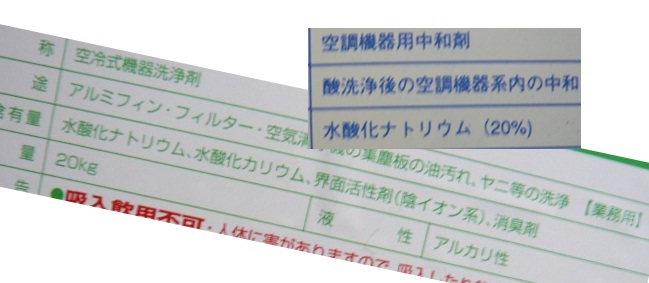 空調機器用中和剤
酸洗浄後の空調機器系内の中和
水酸化ナトリウム（20%）
称 空冷式機器洗浄剤
途 アルミフィン・フィルター・空気清 機の集塵板の油汚れ、ヤニ等の洗浄 【業務用】
含有量 水酸化ナトリウム、水酸化カリウム、界面活性剤(陰イオン系)、消臭剤
量 20kg 液 性 アルカリ性
●吸入飲用不可・人体に害がありますので、吸入したり